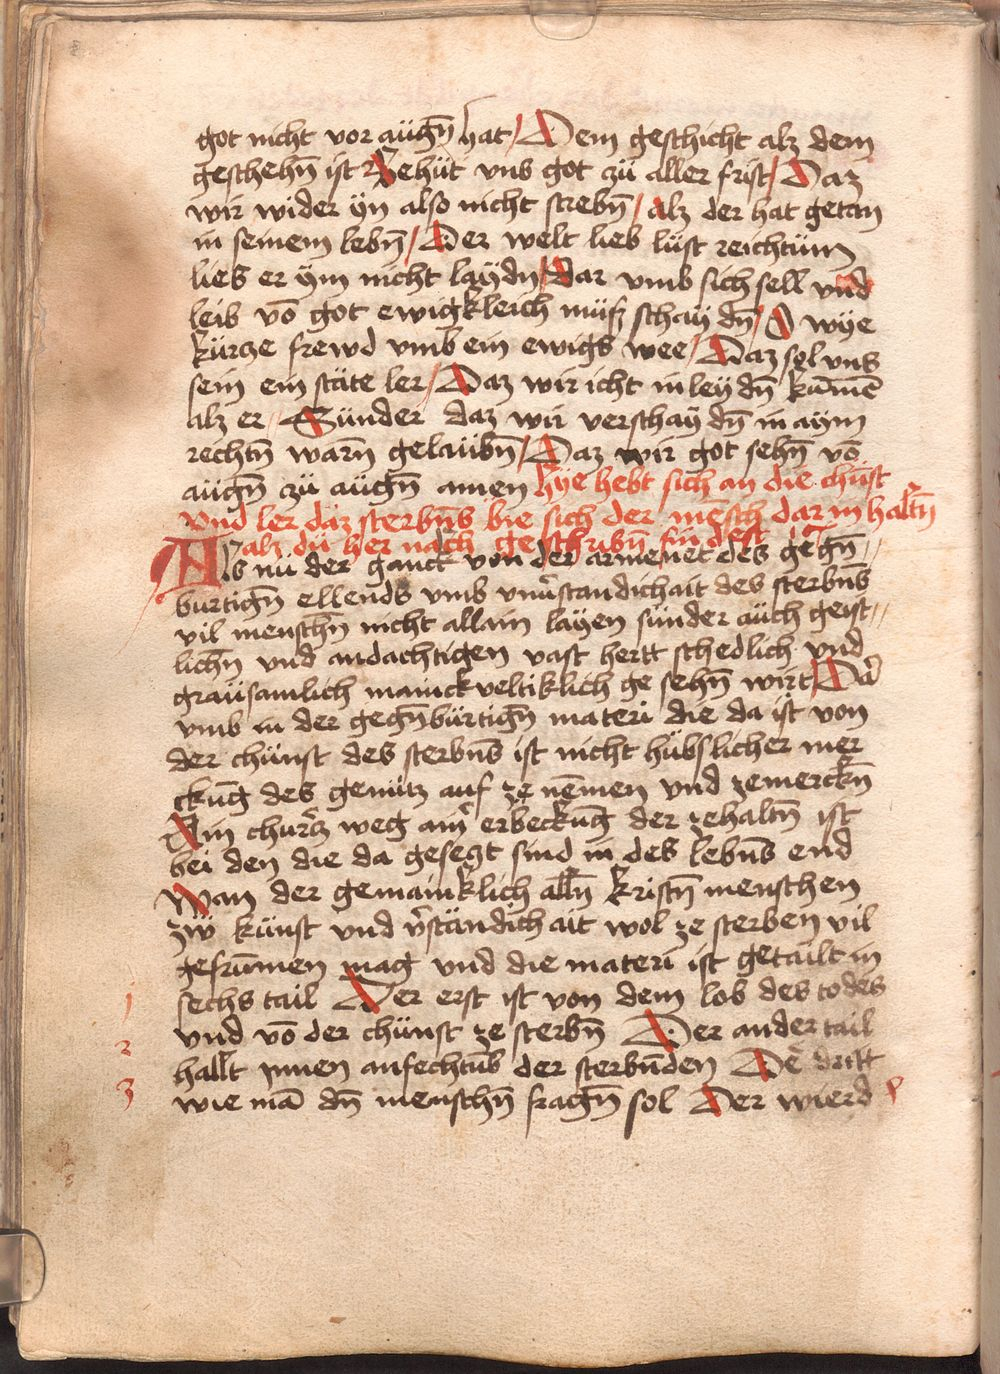 got nicht vor augn̄ hat / Dem geschicht alz dem
geschehn̄ ist Behüt vns got zü aller frist / Daz
wir wider ÿn also nicht strebn̄ / alz der hat getan
in seinem lebn̄ / Der welt lieb lüst reichtüm
lies er ÿm nicht laÿdn / Dar vmb sich sell vnd
leib vō got ewigkleich müsz schaÿdn̄ / O wÿe
kürcze frewd vmb ein ewigs wee / Daz sol vns
sein ein stäte ler / Daz wir icht in leÿdn̄ kūmē
alz er / Sünder daz wir verschaÿdn̄ in aÿm
rechtn̄ warn̄ gelaübn̄ / Daz wir got sehn̄ vō
aügn̄ zü aügn̄ amen hÿe hebt sich an die chūst
vnd ler daz sterbn̄s bie sich der mensch dar in haltn̄
alz dü her nach geschribn̄ findest
Als nü der ganck von der armenet des gegn̄
burtign̄ ellends vmb vnv̄standichait des sterbn̄s
vil menschn̄ nicht allain laÿen sünder aüch geist
lichn̄ vnd andachtigen vast hertt schedlich vnd
graüsamlich mainckveltiklich ge sehn̄ wirt / Dar
vmb in der gegn̄bürtign̄ materi die da ist von
der chünst des sterbn̄s ist nicht hübslicher mer
ckūg des gemütz auf ze nēmen vnd zemerckn̄
Ain churcz weg am erbeckūg der zehaltn̄ ist
bei den die da gesegt sind in des lebn̄s end
Wan der gemainklich alln̄ kristn̄ menschen
zw künst vnd v̄ständichait wol ze sterben vil
gefrūmen mag vnd die materi ist getailt in
1 sechs tail Der erst ist von dem lob des todes
vnd vō der chünst ze sterbn̄ Der ander tail
2 hallt ynnen anfechtūb der sterbn̄den De dritt
3 wie mā dn̄ menschn̄ fragn̄ sol Der wierd